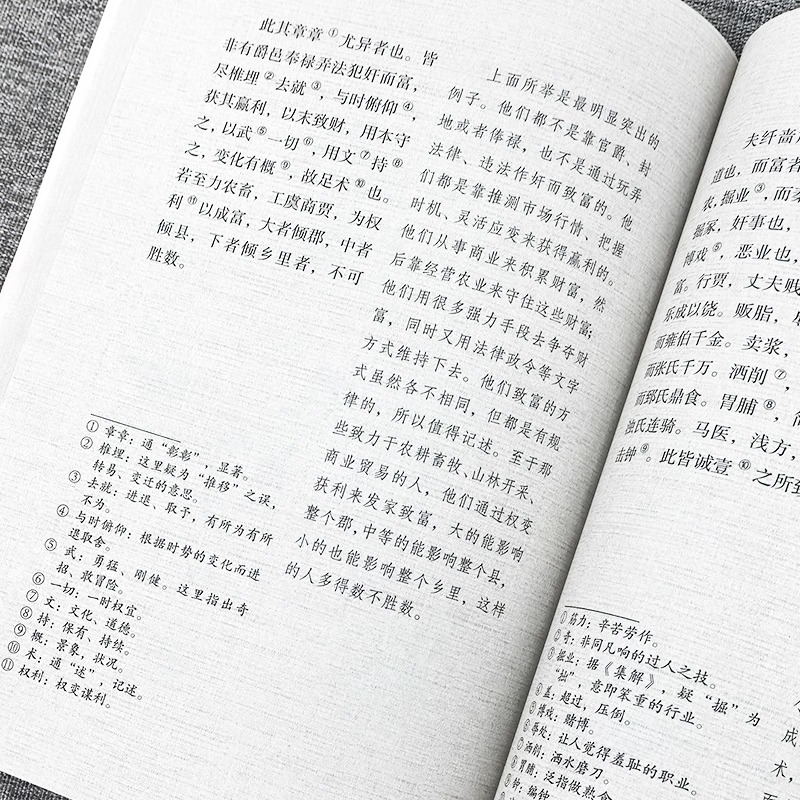 此其章章①尤异者也。皆
非有爵邑奉禄弄法犯奸而富,
尽椎埋②去就③,与时俯仰④,
获其赢利,以末致财,用本守
之,以武⑤一切⑥,用文⑦持⑧
之,变化有概⑨,故足术⑩也。
若至力农畜,工虞商贾,为权
利⑪以成富,大者倾郡,中者
倾县,下者倾乡里者,不可
胜数。
上面所举是最明显突出的
例子。他们都不是靠官爵、封
地或者俸禄,也不是通过玩弄
法律、违法作奸而致富的。他
们都是靠推测市场行情、把握
时机、灵活应变来获得赢利的。
他们从事商业来积累财富,然
后靠经营农业来守住这些财富;
他们用很多强力手段去争夺财
富,同时又用法律政令等文字
方式维持下去。他们致富的方
式虽然各不相同,但都是有规
律的,所以值得记述。至于那
些致力于农耕畜牧、山林开采、
商业贸易的人,他们通过权变
获利来发家致富,大的能影响
整个郡,中等的能影响整个县,
小的也能影响整个乡里,这样
的人多得数不胜数。
① 章章:通“彰彰”,显著。
② 椎埋:这里疑为“推移”之误,
转易、变迁的意思。
③ 去就:进退、取予,有所为有所
不为。
④ 与时俯仰:根据时势的变化而进
退取舍。
⑤ 武:勇猛、刚健。这里指出奇
招、敢冒险。
⑥ 一切:一时权宜。
⑦ 文:文化、道德。
⑧ 持:保有、持续。
⑨ 概:景象,状况。
⑩ 术:通“述”,记述。
⑪ 权利:权变谋利。
夫纤啬
道也,而富者
农,掘业③,而
掘冢,奸事也,
博戏⑤,恶业也,
富。行贾,丈夫贱
乐成以饶。贩脂,
而雍伯千金。卖浆,
而张氏千万。洒削⑦,
而郅氏鼎食。胃脯⑧,
浊氏连骑。马医,浅方,
击钟⑨。此皆诚壹⑩之所
① 筋力:辛苦劳作。
② 奇:非同凡响的过人之技。
③ 掘业:据《集解》,疑“掘”为
“拙”,意即笨重的行业。
④ 盖:超过,压倒。
⑤ 博戏:赌博。
⑥ 辱处:让人觉得羞耻的职业。
⑦ 洒削:洒水磨刀。
⑧ 胃脯:泛指做熟食
成
术,